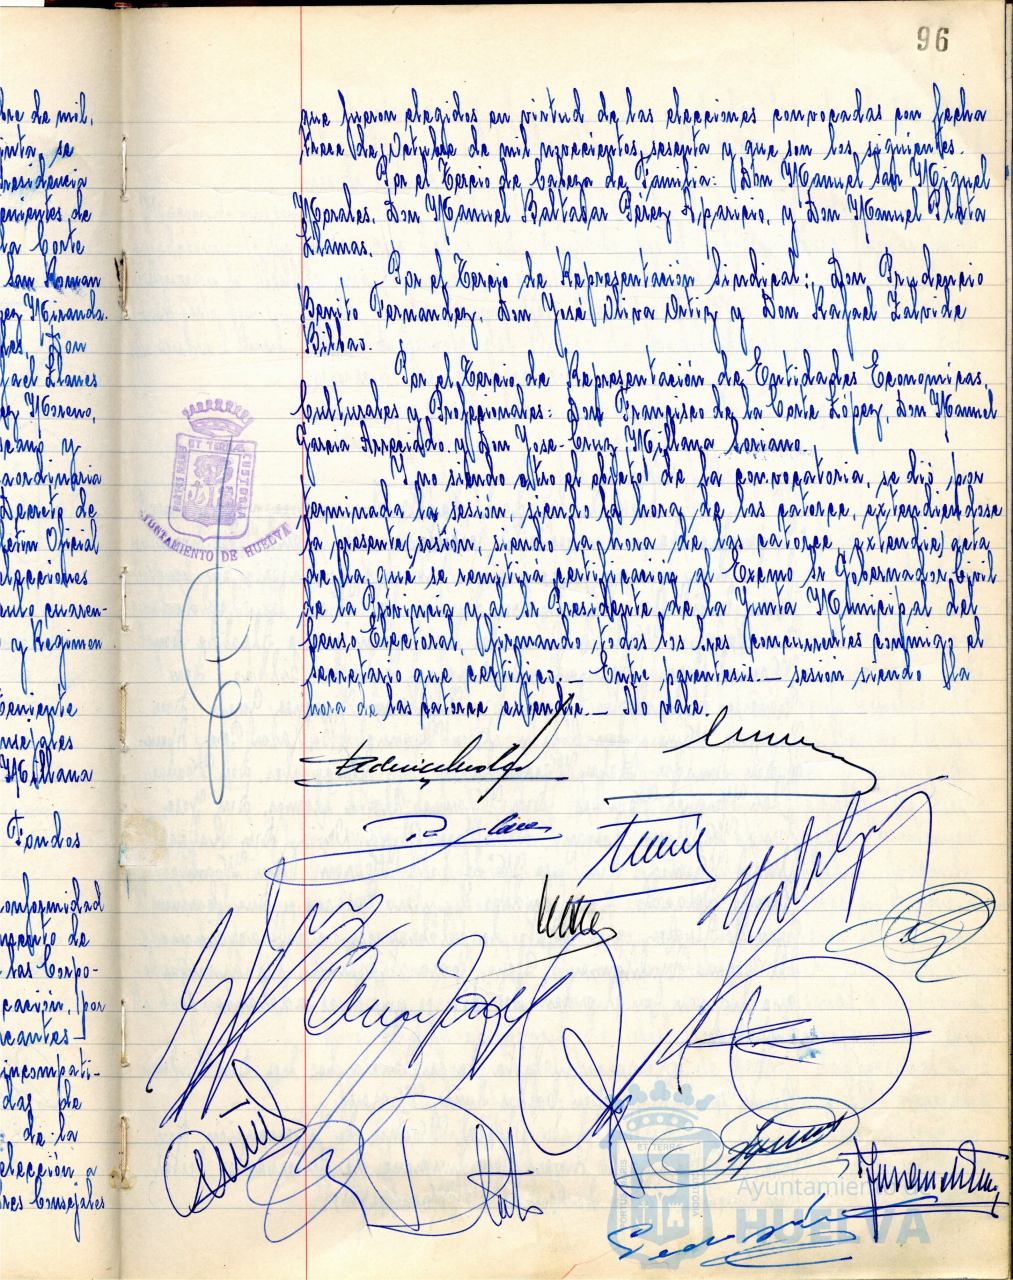 96
bre de mil,
inta, se
residencia
enientes de
la Corte
San Roman
pez Miranda.
Don
fael Llanes
ez Moreno,
y
aordinaria
Decreto de
letin Oficial
elecciones
culo cuaren-
y Regimen
Teniente
nsejales
Millana
Fondos
onformidad
de
las Corpo-
cación, por
cantes-
incompati-
das de
de la
elección a
res Consejales
que fueron elegidos en virtud de las elecciones convocadas con fecha
trece de Octubre de mil novecientos sesenta y que son los siguientes.
Por el Tercio de Cabeza de Familia: Don Manuel San Miguel
Morales, Don Manuel Baltasar Pérez Aparicio, y Don Manuel Plata
Llamas.
Por el Tercio de Representación Sindical: Don Prudencio
Benito Fernandez, Don José Oliva Ortiz y Don Rafael Zalvide
Bilbao.
Por el Tercio de Representación de Entidades Economicas,
Culturales y Profesionales: Don Francisco de la Corte López, Don Manuel
Garcia y Don Jose-Cruz Millana Soriano.
Y no siendo otro el objeto de la convocatoria, se dió por
terminada la sesión, siendo la hora de las catorce, extendiendose
la presente (sesión, siendo la hora de las catorce, extendie) acta
de la que se remitirá certificación al Excmo Sr Gobernador Civil
de la Provincia y al Sr Presidente de la Junta Municipal del
Censo Electoral, firmando todos los Sres concurrentes conmigo el
Secretario que certifico. Entre parentesis.— sesión siendo la
hora de las catorce extendie.— No vale.
AYUNTAMIENTO DE HUELVA
Ayuntamiento de
HUELVA